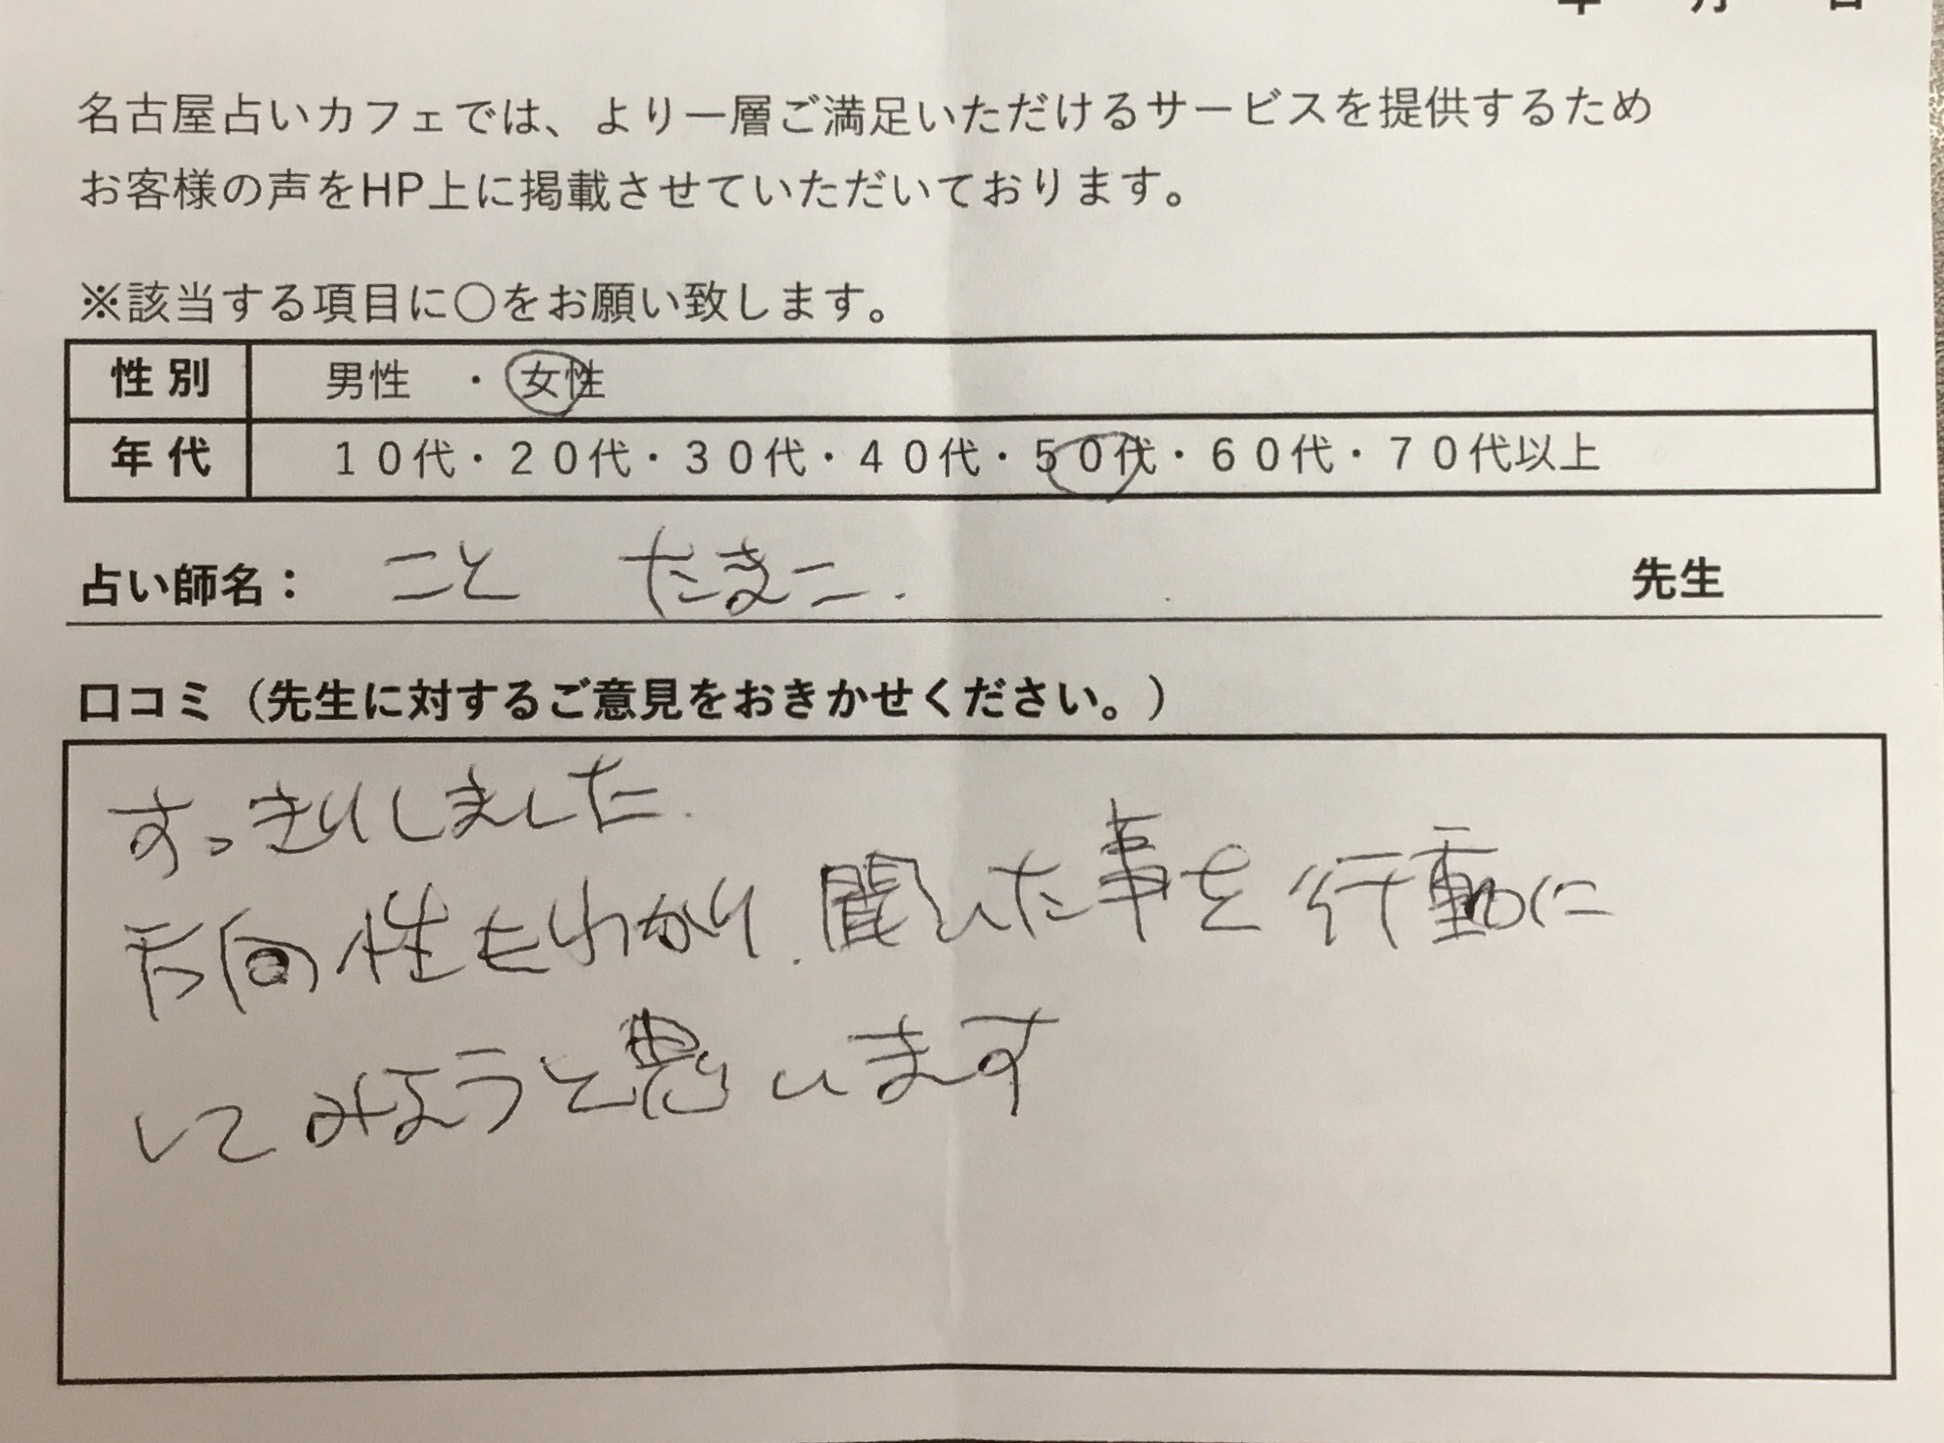 年 月 日
名古屋占いカフェでは、より一層ご満足いただけるサービスを提供するため
お客様の声をHP上に掲載させていただいております。
※該当する項目に〇をお願い致します。
性別 男性 ・ 女性
年代 10代・20代・30代・40代・50代・60代・70代以上
占い師名： こと たまこ. 先生
口コミ（先生に対するご意見をおきかせください。）
すっきりしました.
方向性もわかり、聞いた事を行動に
してみようと思います